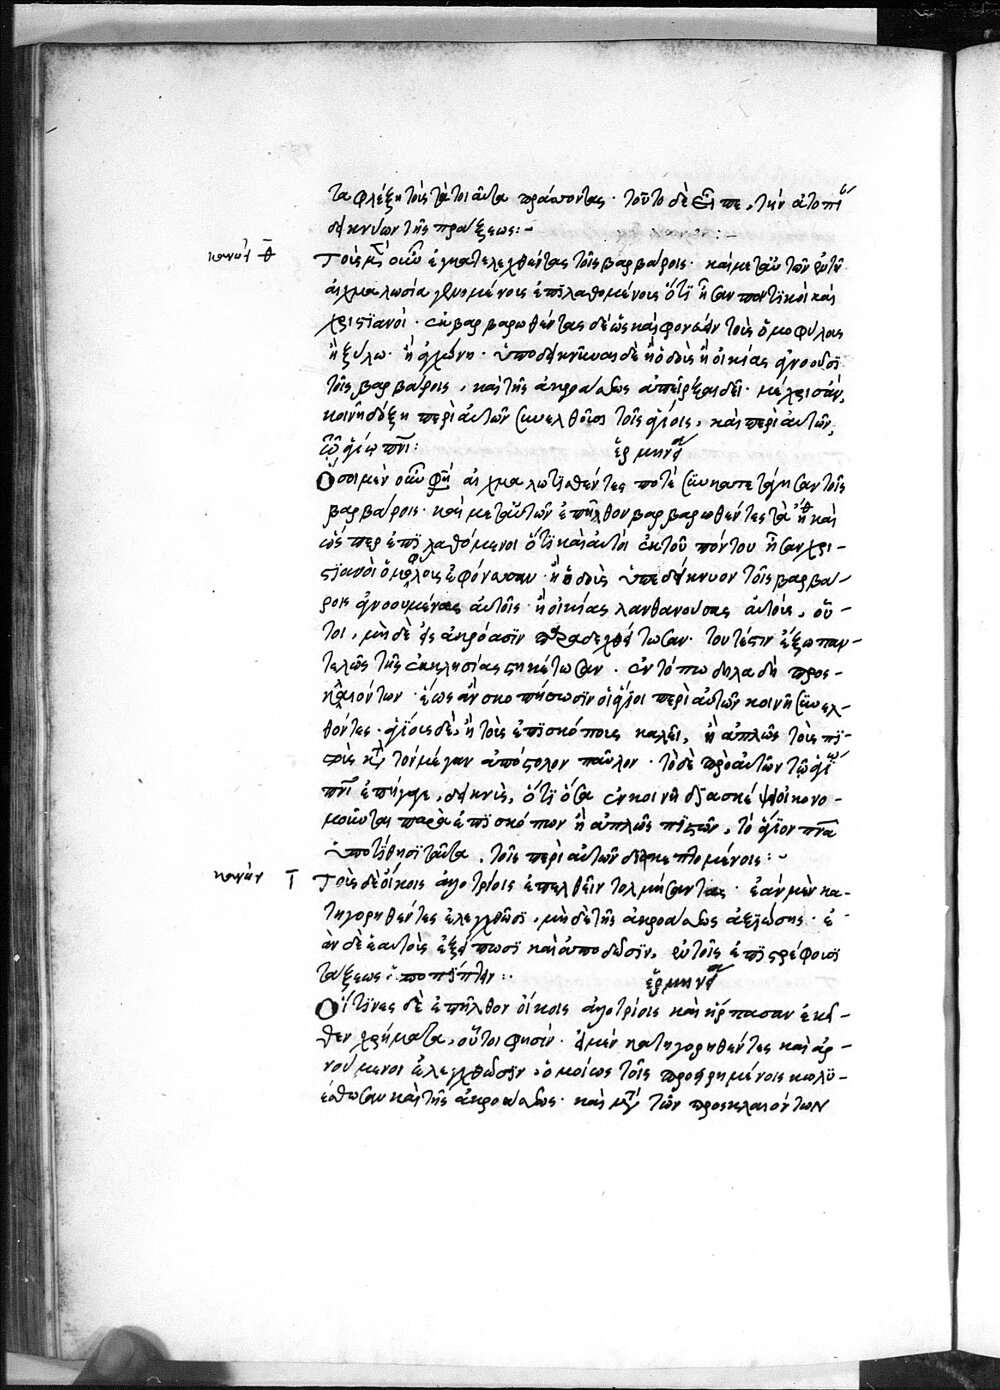 τα φλέξη τοὺς τὰ τοιαῦτα πράττοντας· τοῦτο δὲ εἶπε, τὴν ἀτοπί
δεικνύων τῆς πράξεως:-
κανὼν θ Τοὺς μὲν οὖν ἐγκατελεχθέντας τοῖς βαρβάροις· καὶ μετ' αὐτῶν ἐν τῇ
αἰχμαλωσία γενομένοις ἐπιλαθομένοις ὅτι ἦσαν ποντικοὶ καὶ
χριστιανοί· ἐκβαρβαρωθέντας δὲ ὡς καὶ φονεύειν τοὺς ὁμοφύλους
ἢ ξύλω· ἢ ἀγχόνη· ὑποδεικνύναι δὲ ἢ ὁδοὺς ἢ οἰκίας ἀγνοοῦσι
τοῖς βαρβάροις, καὶ τῆς ἀκροάσεως ἀπεῖρξαι δεῖ· μέχρις ἂν,
κοινῆ δόξη περὶ αὐτῶν συνελθοῦσι τοῖς ἁγίοις, καὶ περὶ αὐτῶν,
τῷ ἁγίω πνι: ἑρμηνεία
Ὅσοι μὲν οὖν φησὶ αἰχμαλωτισθέντες ποτὲ συγκατετάγησαν τοῖς
βαρβάροις· καὶ μετ' αὐτῶν ἐπῆλθον βαρβαρωθέντες τὰ ἤθη καὶ
ὥσπερ ἐπιλαθόμενοι ὅτι καὶ αὐτοὶ ἐκ τοῦ πόντου ἦσαν χρι-
στιανοὶ ὁμοφύλους ἐφόνευσαν· ἢ ὁδοὺς ὑπεδείκνυον τοῖς βαρβά-
ροις ἀγνοουμένας αὐτοῖς· ἢ οἰκίας λανθανούσας αὐτούς, οὗ-
τοι, μὴ δὲ εἰς ἀκρόασιν παραδεχθήτωσαν· τουτέστιν ἔξω παν-
τελῶς τῆς ἐκκλησίας στηκέτωσαν· ἐν τόπω δηλαδὴ προσ-
κλαιόντων· ἕως ἂν σκοπήσωσιν οἱ ἅγιοι περὶ αὐτῶν κοινῆ συνελ-
θόντες· ἁγίους δὲ, ἢ τοὺς ἐπισκόπους καλεῖ, ἢ ἁπλῶς τοὺς πι-
στοὺς κατὰ τὸν μέγαν ἀπόστολον παῦλον· τὸ δὲ πρὸ αὐτῶν τῷ ἁγίω
πνι ἐπήγαγε, δεικνὺς, ὅτι ὅσα ἐν κοινῆ διασκέψει οἰκονο-
μοῦνται παρὰ ἐπισκόπων ἢ ἁπλῶς πιστῶν, τὸ ἅγιον πνα
ὑποτίθησι ταῦτα, τοῖς περὶ αὐτῶν διασκεπτομένοις:-
κανὼν ι Τοὺς δὲ οἴκοις ἀλλοτρίοις ἐπελθεῖν τολμήσαντας· ἐὰν μὲν κα-
τηγορηθέντες ἐλεγχθῶσι, μὴ δὲ τῆς ἀκροάσεως ἀξιώσης· ἐ-
ὰν δὲ ἑαυτοὺς ἐξείπωσι καὶ ἀποδῶσιν, ἐν τοῖς ἐπιστρέφουσι
τάξεως ὑποπίπτειν: ἑρμηνεία
Οἵτινες δὲ ἐπῆλθον οἴκοις ἀλλοτρίοις καὶ ἥρπασαν ἐκεῖ-
θεν χρήματα, οὗτοι φησίν· εἰ μὲν κατηγορηθέντες καὶ ἀρ-
νούμενοι ἐλεγχθῶσιν, ὁμοίως τοῖς προειρημένοις κωλυ-
έσθωσαν καὶ τῆς ἀκροάσεως· καὶ μετὰ τῶν προσκλαιόντων